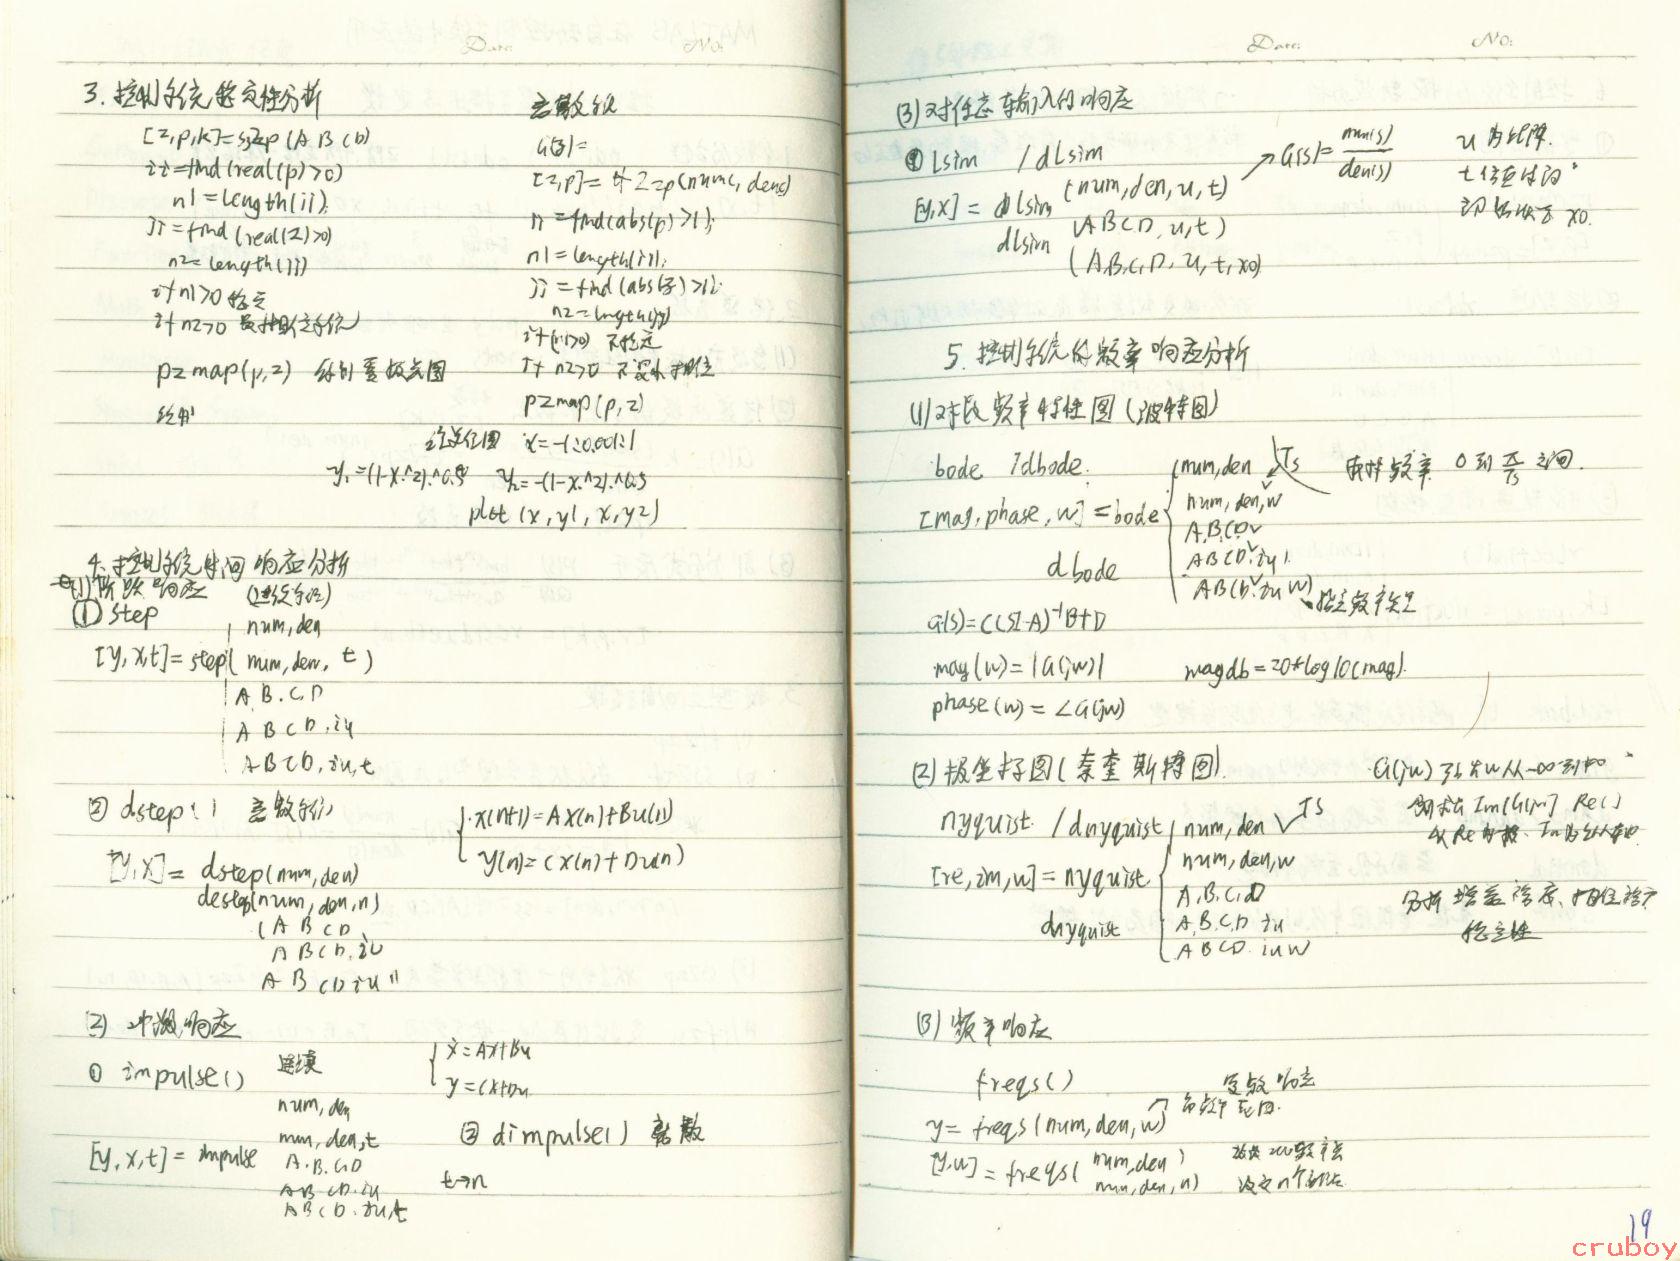 Date: No:
3. 控制系统稳定性分析
[z,p,k]=ss2zp(A,B,C,D)
ii=find(real(p)>0)
n1=length(ii);
jj=find(real(z)>0)
n2=length(jj)
if n1>0 稳定
if n2>0 最小相位系统
pzmap(p,z) 绘制零极点图
绘制
离散系统
G(z)=
[z,p]=tf2zp(numc,denc)
ii=find(abs(p)>1);
n1=length(ii);
jj=find(abs(z)>1);
n2=length(jj)
if(n1>0) 不稳定
if n2>0 不是最小相位
pzmap(p,z)
绘单位圆 x=-1:0.001:1
y1=(1-x.^2).^0.5 y2=-(1-x.^2).^0.5
plot(x,y1,x,y2)
4. 控制系统时间响应分析
(1)阶跃响应 (连续系统)
① step
num,den
[y,x,t]=step( num,den, t )
A,B,C,D
A B C D,iu
A B C D,iu,t
② dstep() 离散系统
x(n+1)=Ax(n)+Bu(n)
y(n)=Cx(n)+Du(n)
[y,x]= dstep(num,den)
dstep(num,den,n)
( A B C D
A B C D,iu
A B C D iu n
(2) 冲激响应
① impulse() 连续
ẋ=Ax+Bu
y=Cx+Du
num,den
num,den,t
[y,x,t]=impulse A.B.C.D
A B C D.iu
A B C D.iu,t
② dimpulse() 离散
t→n
Date: No:
(3) 对任意输入的响应
① lsim / dlsim
[y,x] = dlsim (num,den,u,t) → G(s)=num(s)/den(s)
dlsim (A B C D,u,t)
(A,B,C,D,u,t,x0)
u 为矩阵.
初始状态 x0.
5. 控制系统的频率响应分析
(1)对数频率特性图(波特图)
bode /dbode.
num,den Ts
频率 0到 π/Ts 之间.
[mag,phase,w]=bode num,den,w
A,B,C,D
A B C D.iu
dbode A B C D.iu w
指定频率矢量
G(s)=C(sI-A)⁻¹B+D
mag(w)=|G(jw)| magdb=20*log10(mag).
phase(w)=∠G(jw)
(2) 极坐标图(奈奎斯特图)
nyquist /dnyquist num,den Ts
num,den,w
[re,im,w]=nyquist A,B,C,D
dnyquist A,B,C,D iu
A B C D.iu w
分析 增益裕度、相位裕度
稳定性
(3) 频率响应
freqs()
y=freqs(num,den,w)
[y,w]=freqs( num,den )
num,den,n)
19
cruboy